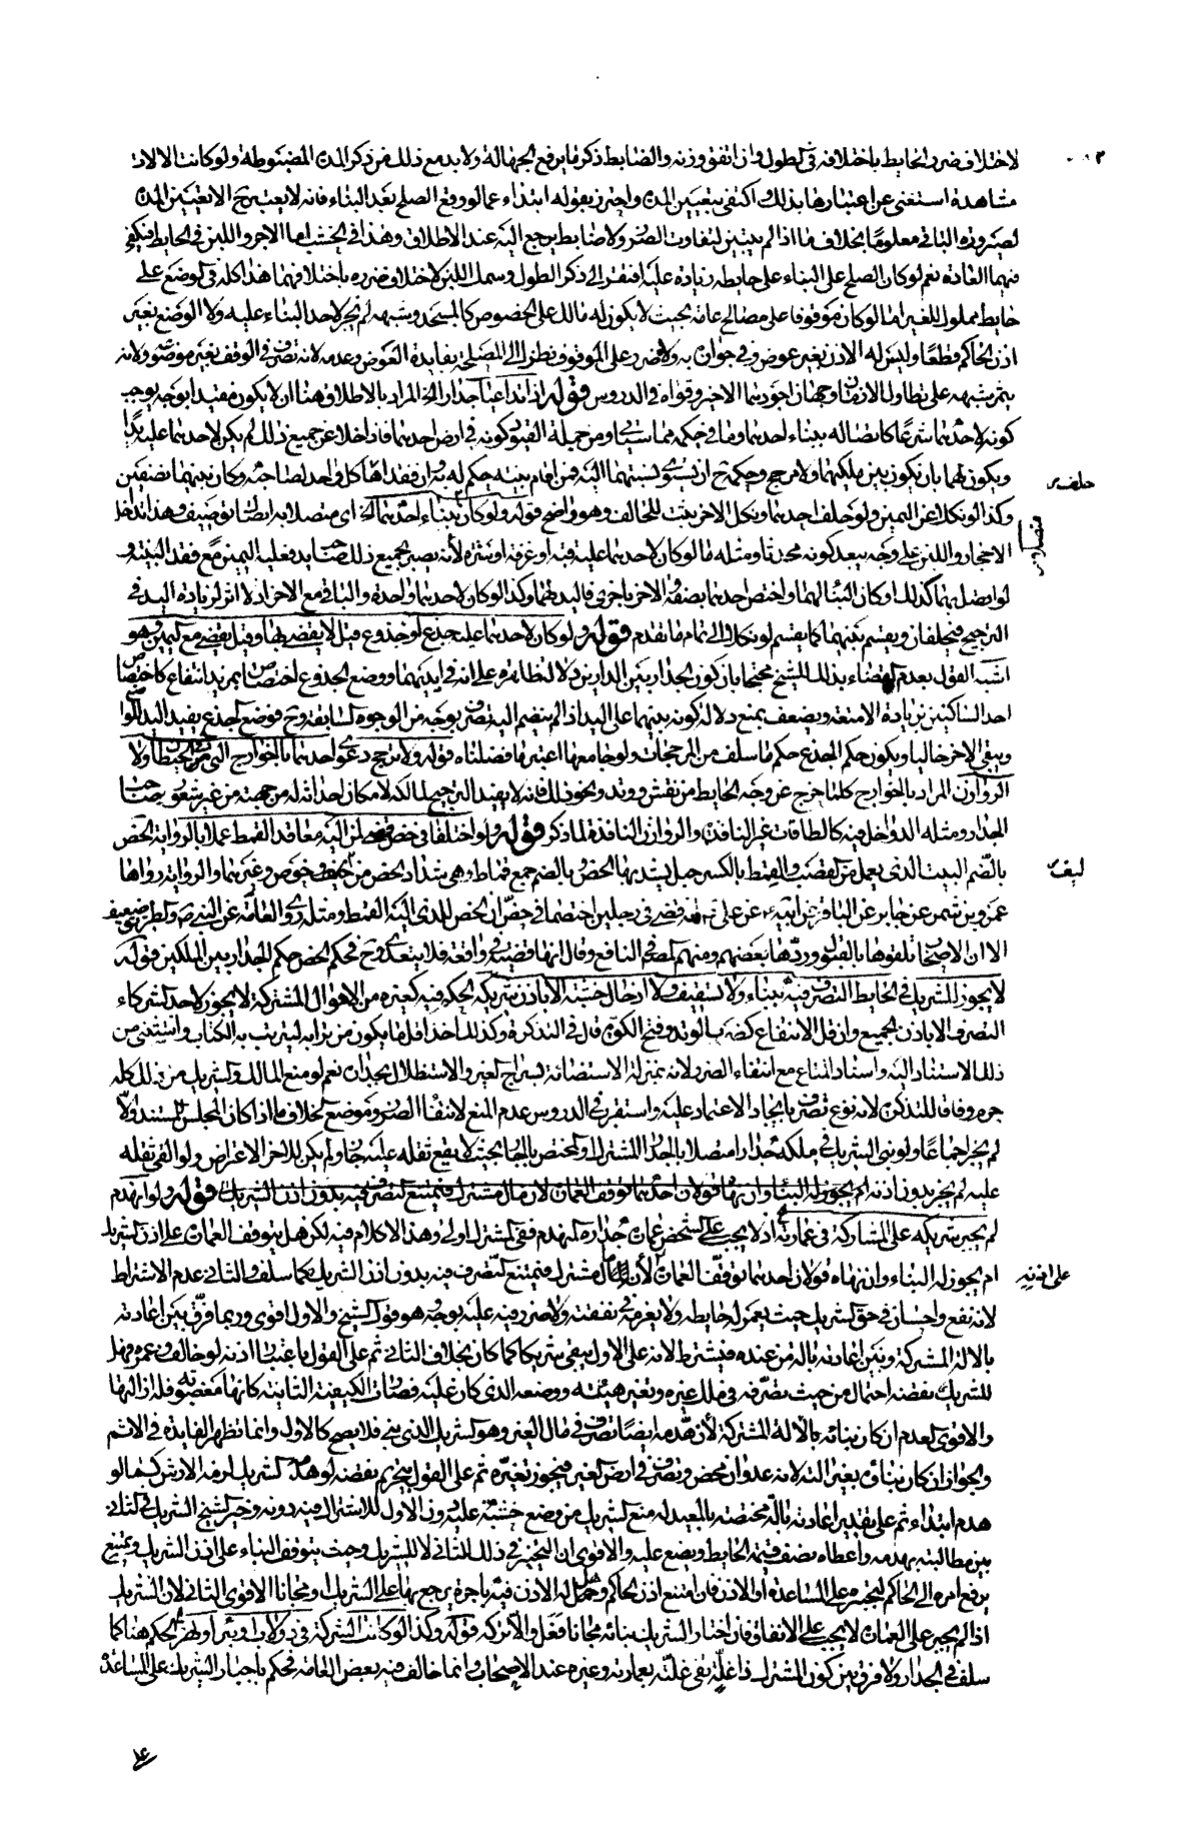 لاختلاف ضرر الحايط باختلافه في الطول وان اتفق وزنه والضابط ذكر ما يرفع الجهالة ولا بد مع ذلك من ذكر المدة المضبوطة ولو كانت الالات
مشاهدة استغنى عن اعتبارها بذلك واكتفى بتعيين المدة واحترز بقوله ابتداء عما لو وقع الصلح بعد البناء فانه لا يعتبر ح الا تعيين المدة
لصيرورة الباقي معلوما بخلاف ما اذا لم يتبين لتفاوت الضرر ولا ضابط يرجع اليه عند الاطلاق وهذا في الخشب اما الاجر واللبن في الحايط فيكفي
فيهما العادة نعم لو كان الصلح على البناء على حايطه زيادة عليه افتقر الى ذكر الطول وسمك اللبن لاختلاف ضرره باختلافهما هذا كله في الوضع على
حايط مملوك للغير اما لو كان موقوفا على مصالح عامة بحيث لا يكون له مالك على الخصوص كالمسجد وشبهه لم يجز لاحد البناء عليه ولا الوضع بغير
اذن الحاكم قطعا وليس له الاذن بغير عوض وفي جوازه به ولا ضرر على الموقوف نظرا الى المصلحة بفايدة العوض وعدمه لانه تصرف في الوقف بغير موضوعه ولانه
يثمر شبهه على تطاول الازمان وجهان اجودهما الاخير وقواه في الدروس قوله اذا تداعيا جدارا الخ المراد بالاطلاق هنا ان لا يكون مقيدا بوجه يوجب
كونه لاحدهما شرعا كاتصاله ببناء احدهما وما في حكمه مما سياتي ومن جملة القيود كونه في ارض احدهما فاذا خلا عن جميع ذلك لم يكن لاحدهما عليه يد
ويكون لهما بان يكون بين ملكيهما ولا مرجح وحكمه ح ان يستوى نسبتهما اليه فمن اقام بينة حكم له به وان فقداها حلف كل واحد لصاحبه وكان بينهما نصفين
وكذا لو نكلا عن اليمين ولو حلف احدهما ونكل الاخر يثبت للحالف وهو واضح قوله ولو كان ببناء احدهما الخ اي متصلا به اتصال ترصيف وهذا تداخل
الاحجار واللبن على وجه يبعد كونه محدثا ومثله ما لو كان لاحدهما عليه قبة او غرفة او سترة لانه يصير بجميع ذلك صاحب يد فعليه اليمين مع فقد البينة و
لو اتصل بهما كذلك او كان البناء لهما او اختص احدهما بصفة والاخر باخرى فاليد لهما وكذا لو كان لاحدهما واحدة والباقي مع الاخر اذ لا اثر لزيادة اليد في
الترجيح فيحلفان ويقسم بينهما كما يقسم لو نكلا الى تمام ما تقدم قوله ولو كان لاحدهما عليه جذع او جذوع قيل لا يقضى بها وقيل يقضى مع اليمين وهو
اشبه القول بعدم القضاء بذلك للشيخ محتجا بان كون الجدار بين الدارين دلالة ظاهرة على انه في ايديهما ووضع الجذوع اختصاص بمزيد انتفاع كاختصاص
احد الساكنين بزيادة الامتعة ويضعف بمنع دلالة كونه بينهما على اليد اذا لم ينضم اليه تصرف بوجه من الوجوه السابقة وح فوضع الجذع يفيد اليد للواضع
ويبقى الاخر خاليا ويكون حكم الجذع حكم ما سلف من المرجحات ولو جامعها اعتبر ما فصلناه قوله ولا ترجح دعوى احدهما بالخوارج التي في الحيطان ولا
الروازن المراد بالخوارج كلما خرج عن وجه الحايط من نقش ووتد ونحو ذلك فانه لا يفيد الترجيح لمالكه لامكان احداثه له من جهته من غير شعور صاحب
الجدار ومثله الدواخل فيه كالطاقات غير النافذة والروازن النافذة لما ذكر قوله ولو اختلفا في خص قضى لمن اليه معاقد القمط عملا بالرواية الخص
بالضم البيت الذي يعمل من القصب والقمط بالكسر حبل يشد بهما الخص وبالضم جمع قماط وهي شداد الخص من ليف وخوص وغيرهما والرواية رواها
عمرو بن شمر عن جابر عن الباقر عن ابيه عن علي انه قضى في رجلين اختصما في خص ان الخص للذي اليه القمط ومثله روى العامة عن النبي ص والطريق ضعيف
الا ان الاصحاب تلقوها بالقبول وردها بعضهم ومنهم المص في النافع وقال انها قضية في واقعة فلا يتعدى وح فحكم الخص حكم الجدار بين الملكين قوله
لا يجوز للشريك في الحايط التصرف فيه ببناء ولا تسقيف ولا ادخال خشبة الا باذن شريكه الحكم فيه كغيره من الاموال المشتركة لا يجوز لاحد الشركاء
التصرف الا باذن الجميع وان قل الانتفاع كضرب الوتد وفتح الكوة قال في التذكرة وكذلك اخذ اقل ما يكون من ترابه ليترب به الكتاب واستثنى من
ذلك الاستناد اليه واسناد المتاع مع انتفاء الضرر لانه بمنزلة الاستضاءة بسراج الغير والاستظلال بجداره نعم لو منع المالك والشريك من ذلك كله
حرم وفاقا للتذكرة لانه نوع تصرف بايجاد الاعتماد عليه واستقرب في الدروس عدم المنع لانتفاء الضرر وموضع الخلاف ما اذا كان المجلس للمستند والا
لم يجز اجماعا ولو بنى الشريك في ملكه جدارا متصلا بالجدار المشترك او المختص بالجار بحيث لا يقع ثقله عليه جاز ولم يكن للاخر الاعتراض ولو القى ثقله
عليه لم يجز بدون اذنه قوله ولو انهدم
لم يجبر شريكه على المشاركة في عمارته اذ لا يجب على الشخص عمارة جداره المنهدم ففي المشترك اولى وهذا لا كلام فيه لكن هل يتوقف العمارة على اذن الشريك
ام يجوز له البناء وان نهاه قولان احدهما توقف العمارة على اذنه لانه مال مشترك فيمتنع التصرف فيه بدون اذن الشريك كما سلف والثاني عدم الاشتراط
لانه نفع واحسان في حق الشريك حيث يعمر له حايطه ولا يغرمه في نفقته ولا ضرر فيه عليه بوجه وهو قول الشيخ والاول اقوى وربما فرق بين اعادته
بالالة المشتركة وبين اعادته بالة من عنده فيشترط لانه على الاول يبقى شريكا كما كان بخلاف الثاني ثم على القول باعتبار اذنه لو خالف وعمره فهل
للشريك نقضه احتمال من حيث تصرفه في ملك غيره وتغير هيئته ووضعه الذي كان عليه فصارت الكيفية الثانية كانها مغصوبة فله ازالتها
والاقوى العدم ان كان بنائه بالالة المشتركة لان هدمه ايضا تصرف في مال الغير وهو الشريك الذي بنى فلا يصح كالاول وانما تظهر الفايدة في الاثم
والجواز ان كان بناؤه بغير الته لانه عدوان محض وتصرف في ارض الغير فيجوز تغييره ثم على القول بتحريم نقضه لو هدمه الشريك لزمه الارش كما لو
هدم ابتداء ثم على تقدير اعادته بالة مختصة بالمعيد له منع الشريك من وضع خشبة عليه دون الاول للاشتراك فيه دونه وخير الشيخ الشريك في الثاني
بين مطالبته بهدمه واعطائه نصف قيمة الحايط ويضع عليه والاقوى ان التخيير في ذلك للثاني لا للشريك وحيث يتوقف البناء على اذن الشريك ويمتنع
يرفع امره الى الحاكم ليجبره على المساعدة او الاذن فان امتنع اذن الحاكم وهل له الاذن فيه باجرة يرجع بها على الشريك او مجانا الاقوى الثاني لان الشريك
اذا لم يجبر على العمارة لا يجب عليه الانفاق فان اختار الشريك بنائه مجانا فعل والا تركه قوله وكذا لو كانت الشركة في دولاب او بئر او نهر الحكم هنا كما
سلف في الجدار ولا فرق بين كون المشترك ذا غلة تفي غلته بعمارته وغيره عند الاصحاب وانما خالف فيه بعض العامة فحكم باجبار الشريك على المساعدة
حلف
ليف
على اذنه